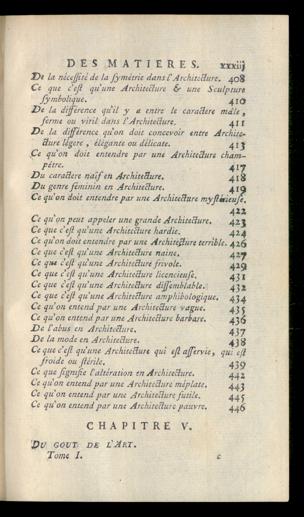 DES MATIERES. xxxiij
De la nécessité de la symétrie dans l'Architecture. 408
Ce que c'est qu'une Architecture & une Sculpture
symbolique. 410
De la différence qu'il y a entre le caractere mâle,
ferme ou viril dans l'Architecture. 411
De la différence qu'on doit concevoir entre Archite-
cture légere, élégante ou délicate. 413
Ce qu'on doit entendre par une Architecture cham-
pêtre. 417
Du caractere naïf en Architecture. 418
Du genre féminin en Architecture. 419
Ce qu'on doit entendre par une Architecture mystérieuse.
422
Ce qu'on peut appeler une grande Architecture. 423
Ce que c'est qu'une Architecture hardie. 424
Ce qu'on doit entendre par une Architecture terrible. 426
Ce que c'est qu'une Architecture naine. 427
Ce que c'est qu'une Architecture frivole. 429
Ce que c'est qu'une Architecture licencieuse. 431
Ce que c'est qu'une Architecture dissemblable. 432
Ce que c'est qu'une Architecture amphibologique. 434
Ce qu'on entend par une Architecture vague. 435
Ce qu'on entend par une Architecture barbare. 436
De l'abus en Architecture. 437
De la mode en Architecture. 438
Ce que c'est qu'une Architecture qui est asservie, qui est
froide ou stérile. 439
Ce que signifie l'altération en Architecture. 442
Ce qu'on entend par une Architecture méplate. 443
Ce qu'on entend par une Architecture futile. 445
Ce qu'on entend par une Architecture pauvre. 446
CHAPITRE V.
DU GOUT DE L'ART.
Tome I. c